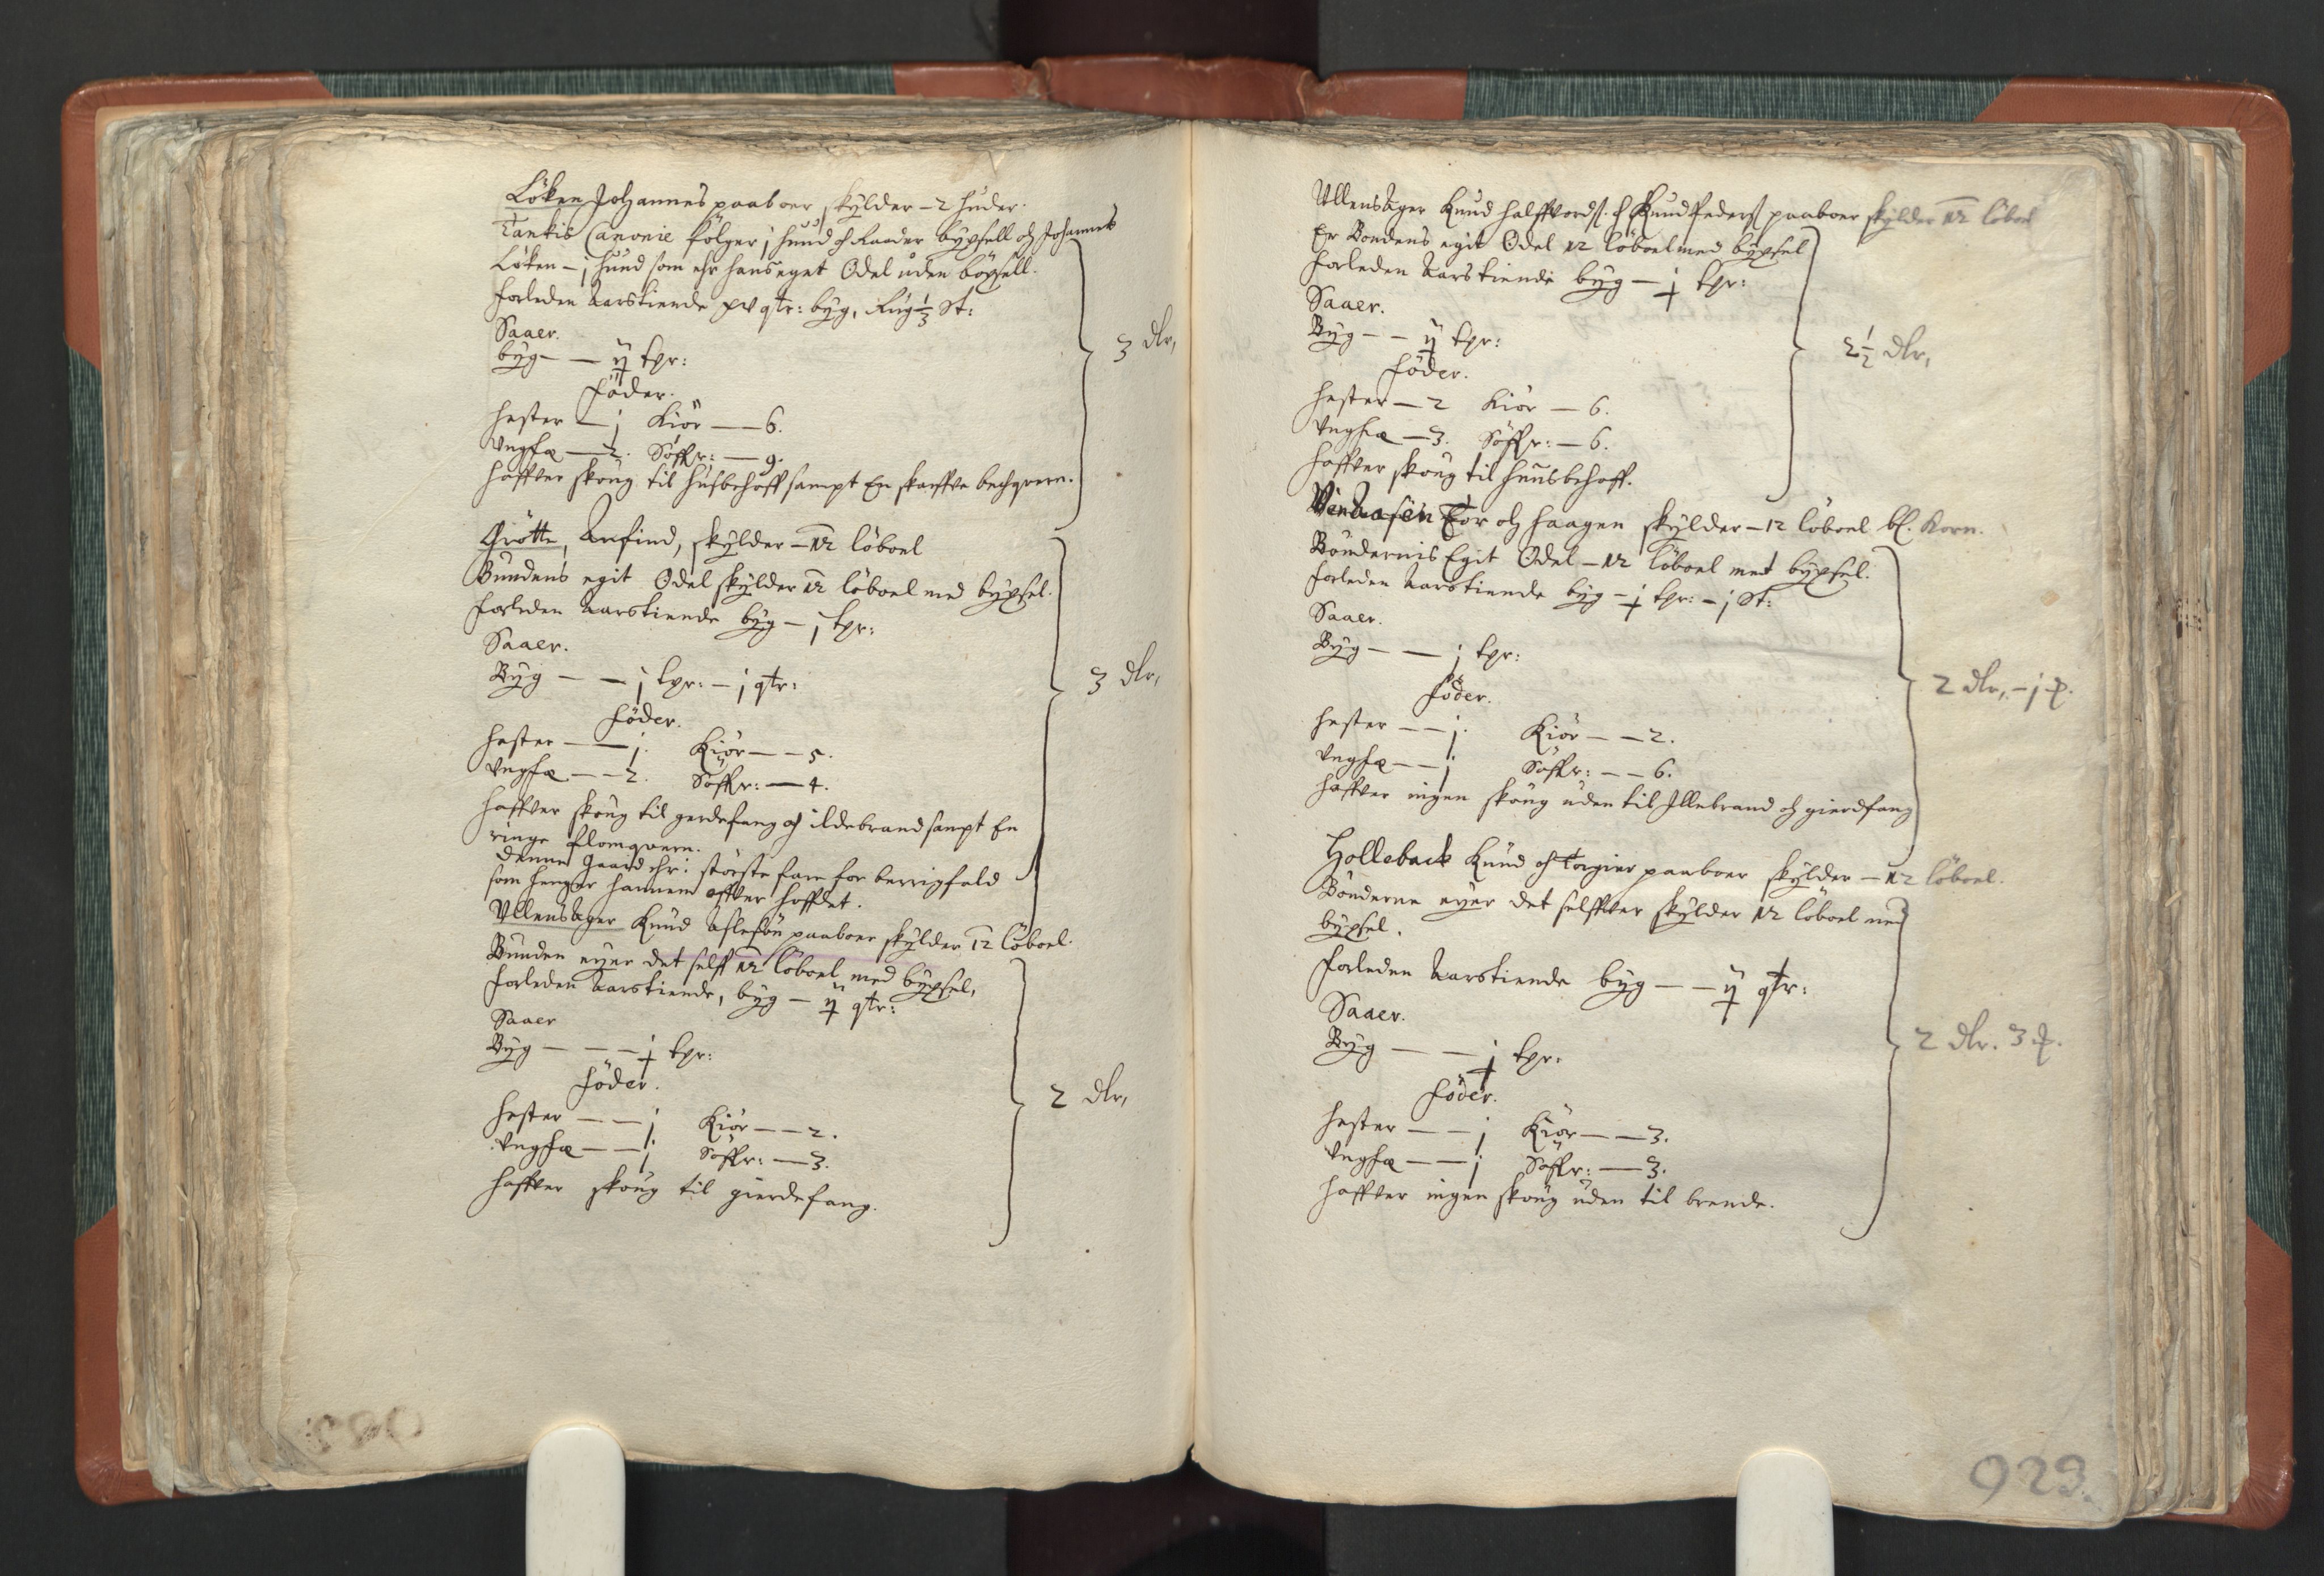 Löken Johannes paaboer skylder - 2 huder.
Tankis Canonie följer j hund och Raader byxsell och Johannes
Löken - j hund som ehr hans eget Odel uden böxsell.
forleden Aarstiende xv qtr: byg, Rug 1/3 St:
Saaer.
byg - - ij tpr:
föder.
hester - j Kiör - - 6.
Ungfæ - 2. Söffr: - 9.
haffver skoug til husbehoff sampt En skarffve bechqvern.
3 dlr,
Grötte, Anfind, skylder - 12 löboel
Bundens egit Odel skylder 12 löboel med byxsel.
forleden Aarstiende byg - j tpr:
Saaer.
Byg - - j tpr: - j qtr:
föder.
hester - - j. Kiör - - 5.
Ungfæ - - 2. Söffr: - 4.
haffver skoug til gerdefang och ildebrand sampt En
ringe flomqvern.
denne Gaard ehr i störste fare for bergfald
som henger hannem offver hoffdet.
3 dlr,
Ullensager Knud Aslesön paaboer skylder 12 löboel.
Bunden eyer det self 12 löboel med byxsel,
forleden Aarstiende, byg - ij qtr:
Saaer
Byg - - - j tpr:
föder.
hester - - j Kiör - - 2.
Ungfæ - - j. Söffr: - 3.
haffver skoug til gierdefang.
2 dlr,
Ullensager Knud halffvords. och Knud Peders paaboer skylder 12 löboel
Er Bondens egit Odel 12 löboel med byxsel
forleden Aarstiende byg - j tpr:
Saaer.
Byg - - ij tpr:
föder.
hester - 2 Kiör - 6.
Ungfæ - 3. Söffr: - 6.
haffver skoug til huusbehoff.
2 1/2 dlr,
Tor och Haagen skylder - 12 löboel bl. Korn.
Böndernis Egit Odel - 12 löboel met byxsel.
forleden Aarstiende byg - j tpr: - j St:
Saaer.
Byg - - j tpr:
föder.
hester - - j. Kiör - - 2.
Ungfæ - - j. Söffr: - - 6.
haffver ingen skoug uden til Illebrand och gierdfang
2 dlr, - j
Holleback Knud och Torgier paaboer skylder - 12 löboel.
Bönderne eyer det selffver skylder 12 löboel med
byxsel.
forleden Aarstiende byg - - ij qtr:
Saaer.
Byg - - j tpr:
föder.
hester - - j Kiör - - 3.
Ungfæ - - j. Söffr: - 3.
haffver ingen skoug uden til brende.
2 dlr. 3
923.